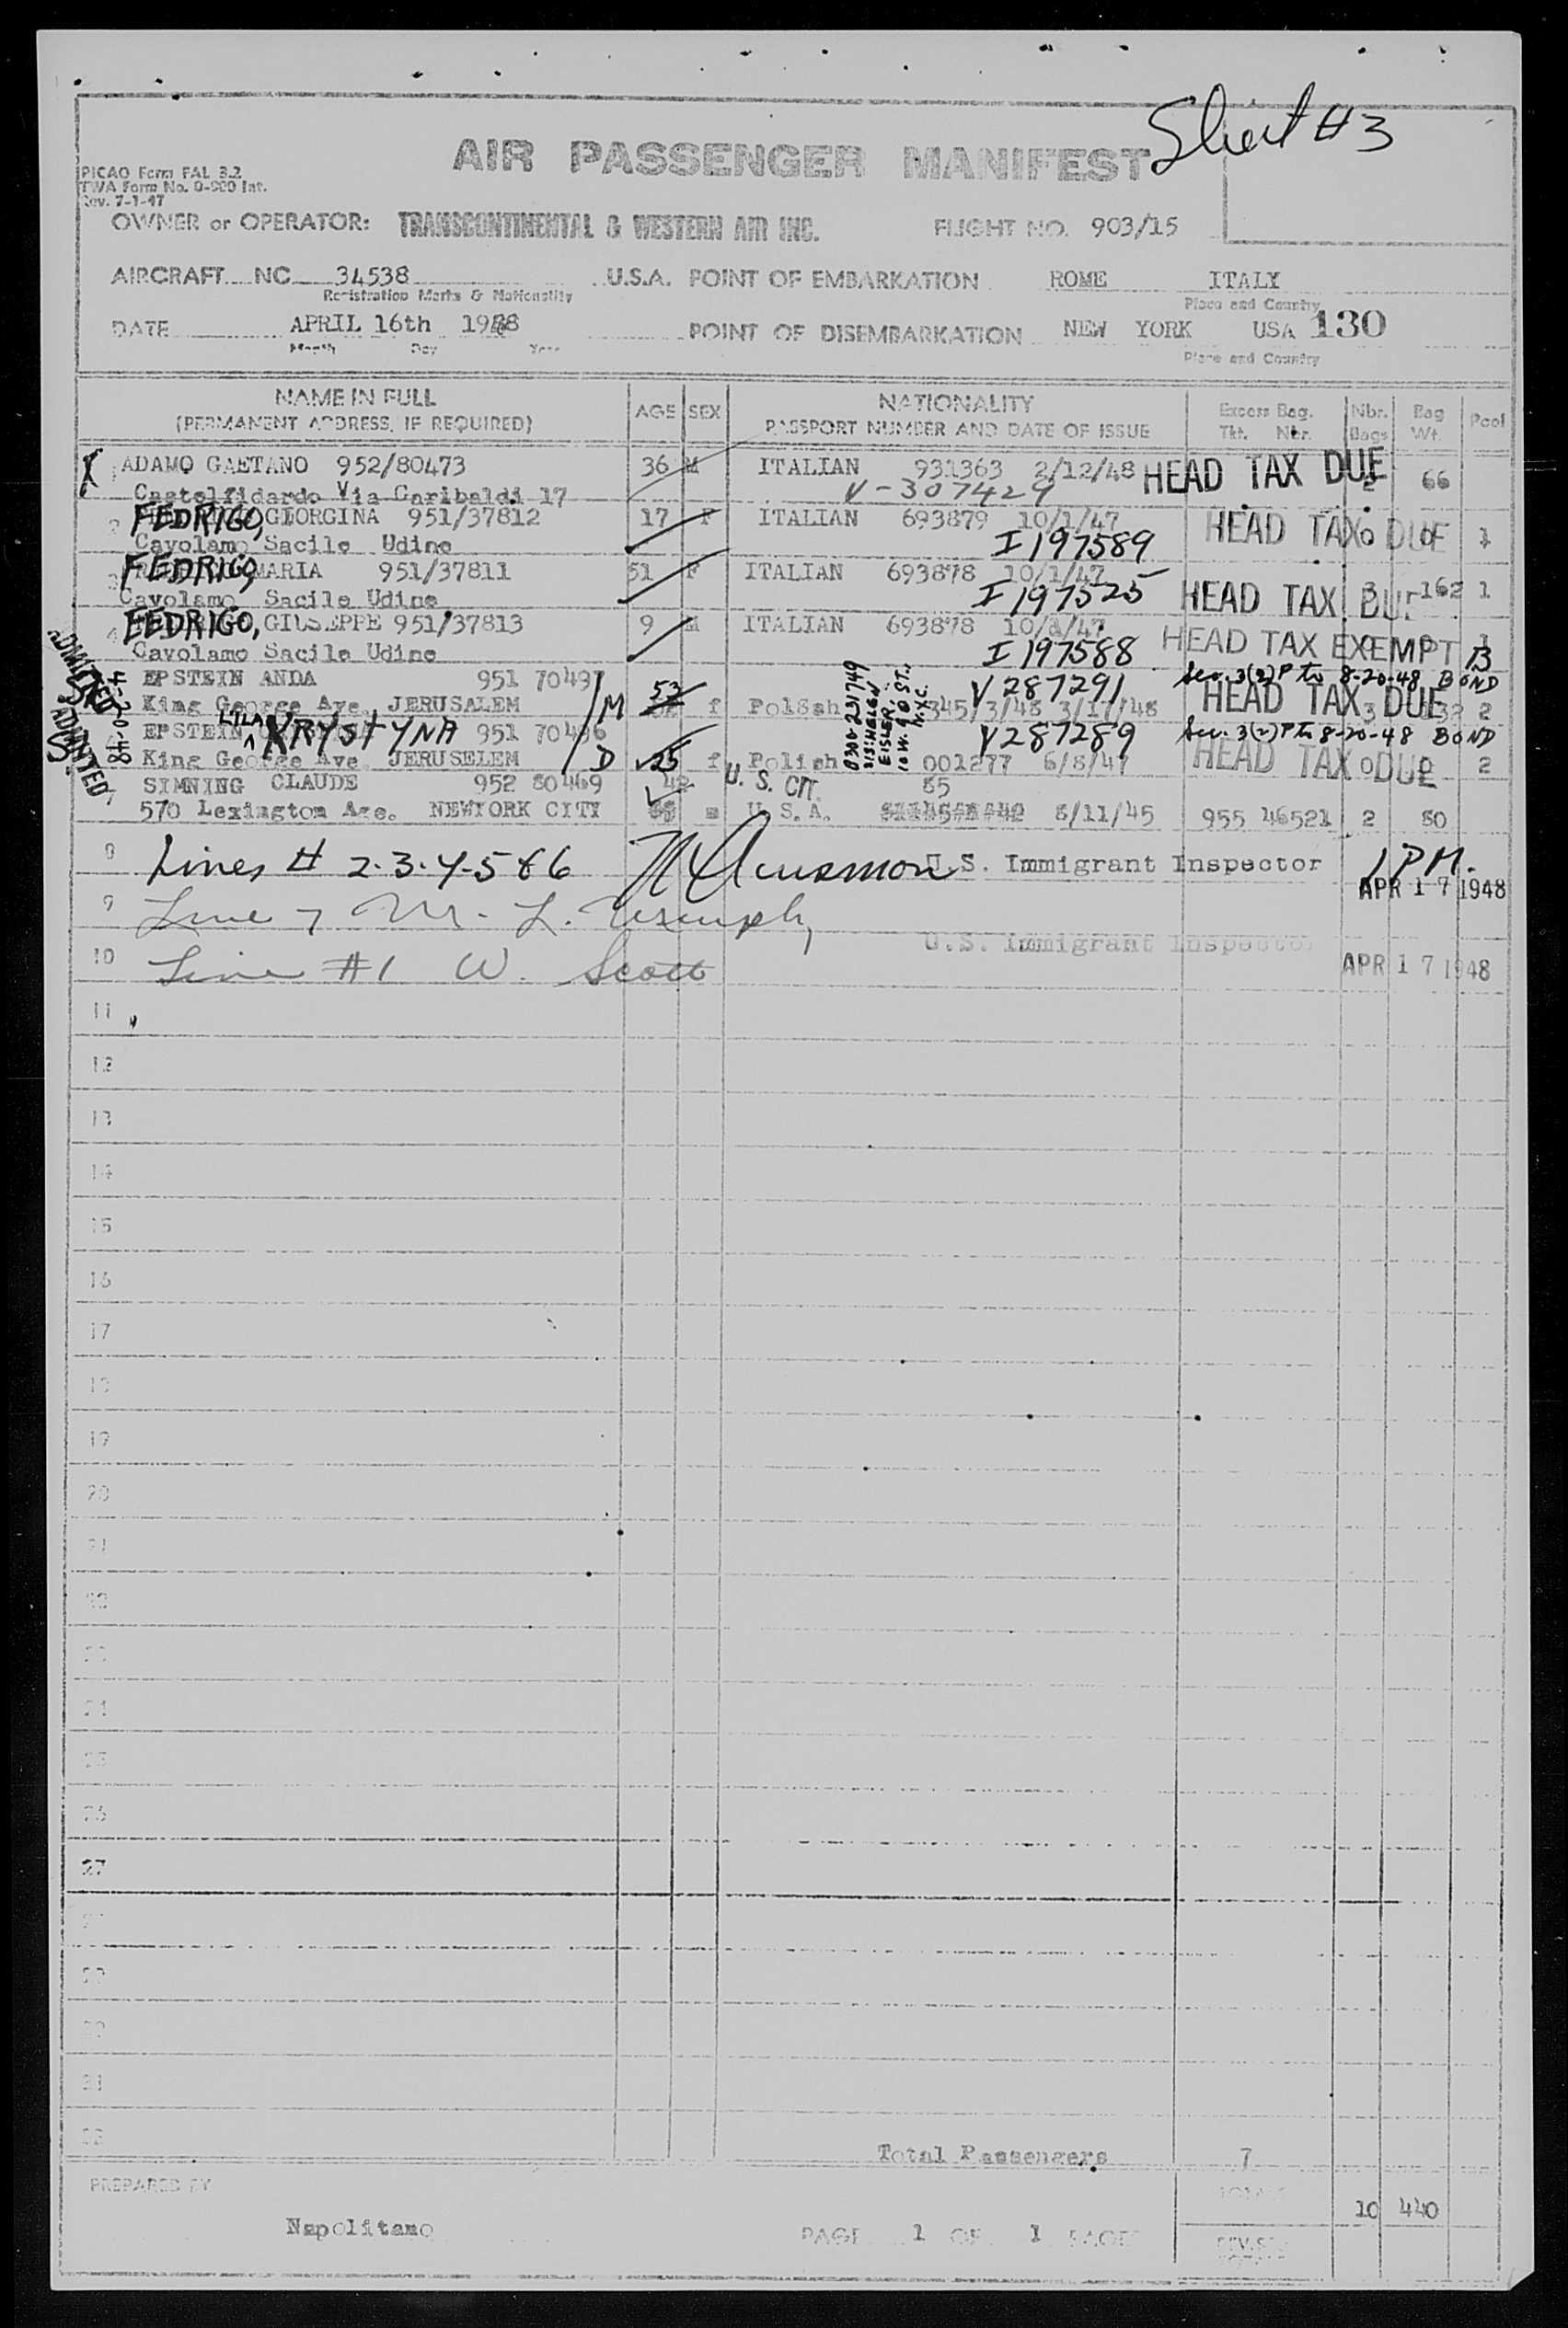 Sheet #3
AIR PASSENGER MANIFEST
PICAO Form FAL 3.2
TWA Form No. O-900 Int.
Rev. 7-1-47
OWNER or OPERATOR: TRANSCONTINENTAL & WESTERN AIR INC. FLIGHT NO. 903/15
AIRCRAFT NC 34538 U.S.A. POINT OF EMBARKATION ROME ITALY
Registration Marks & Nationality Place and Country
DATE APRIL 16th 1948 POINT OF DISEMBARKATION NEW YORK USA 130
Month Day Year Place and Country
NAME IN FULL AGE SEX NATIONALITY Excess Bag. Nbr. Bag Pool
(PERMANENT ADDRESS, IF REQUIRED) PASSPORT NUMBER AND DATE OF ISSUE Tkt. Nbr. Bags Wt.
X ADAMO GAETANO 952/80473 36 M ITALIAN 931363 2/12/48 HEAD TAX DUE 66
Castelfidardo Via Garibaldi 17 V-307429
2 FEDRIGO, GIORGINA 951/37812 17 F ITALIAN 693879 10/1/47 HEAD TAX DUE 1
Cavolamo Sacile Udine I 197589
3 FEDRIGO, MARIA 951/37811 51 F ITALIAN 693878 10/1/47 162 1
Cavolamo Sacile Udine I 197525 HEAD TAX DUE
4 FEDRIGO, GIUSEPPE 951/37813 9 M ITALIAN 693878 10/1/47 HEAD TAX EXEMPT 13
Cavolamo Sacile Udine I 197588
ADMITTED 4-20-48
EPSTEIN ANDA 951 70497 V 287291 Sec. 3(2) P to 8-20-48 BOND
King George Ave. JERUSALEM M 53 f Polish 345/3/48 3/17/48 HEAD TAX DUE 3 2
0300-231749
EISLER,
10 W. 90 ST.,
N.Y.C.
EPSTEIN LILA KRYSHYNA 951 70496 V 287289 Sec. 3(2) P to 8-20-48 BOND
King George Ave JERUSELEM D 25 f Polish 001277 6/8/47 HEAD TAX DUE 0 2
ADMITTED
7 SIMNING CLAUDE 952 80469 42 U.S. CIT. 85
570 Lexington Age. NEWYORK CITY m U.S.A. 8/11/45 955 46521 2 80
8 Lines # 2-3-4-5 & 6 U.S. Immigrant Inspector 1 P.M.
APR 17 1948
9 Line 7 M. L.
U.S. Immigrant Inspector
10 Line #1 W. Scott APR 17 1948
11
12
13
14
15
16
17
18
19
20
21
22
23
24
25
26
27
Total Passengers 7
PREPARED BY TOTALS
10 440
Napolitano PAGE 1 OF 1 PAGE